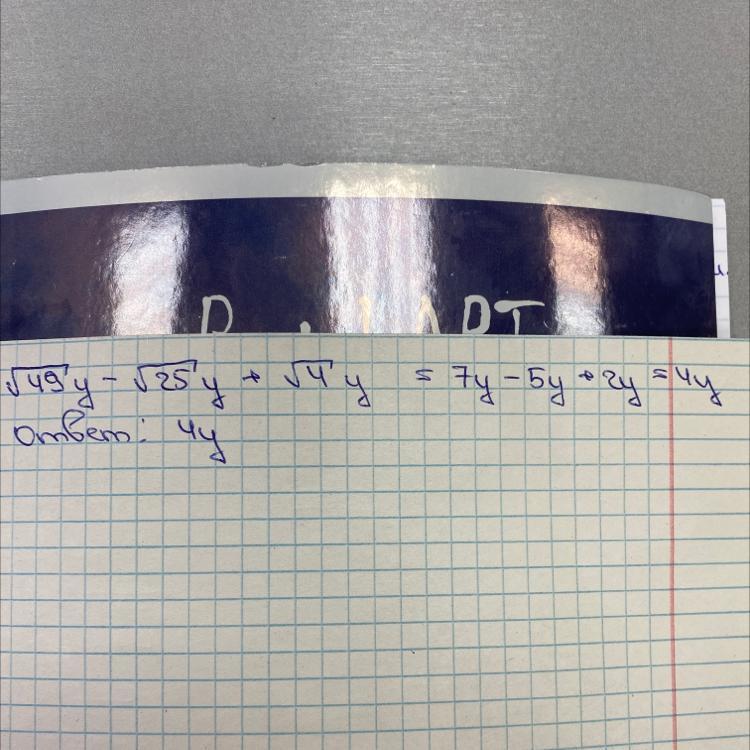 √49 y - √25 y + √4 y = 7y - 5y + 2y = 4y
Ответ: 4y